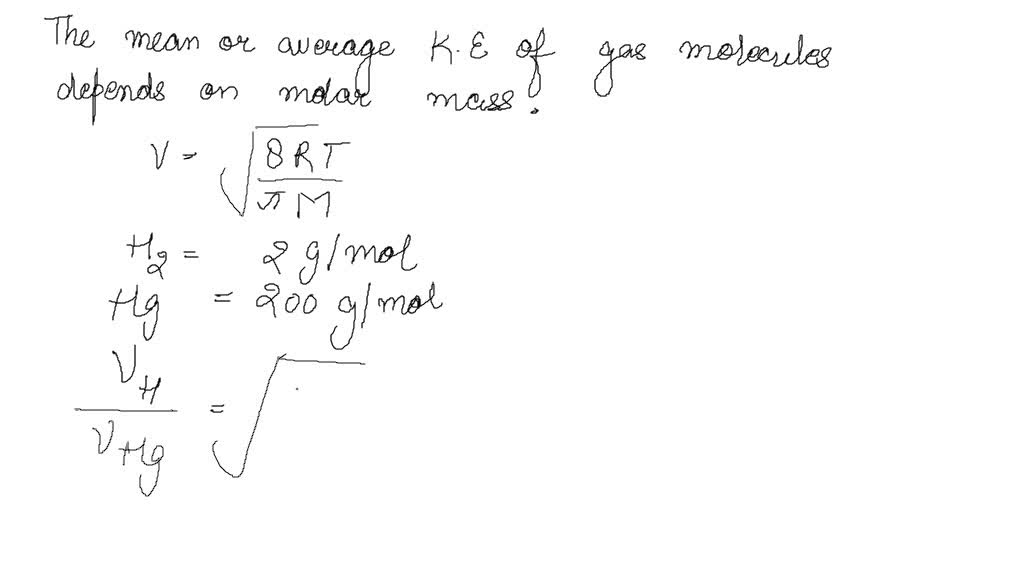 The mean or average K.E of gas molecules
depends on molar mass.
V = √(8RT / πM)
H₂ = 2 g/mol
Hg = 200 g/mol
V_H / V_Hg = √